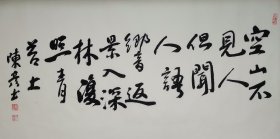 空山不
見人
但聞
人語
響返
景入深
林復
照青
苔上
陳